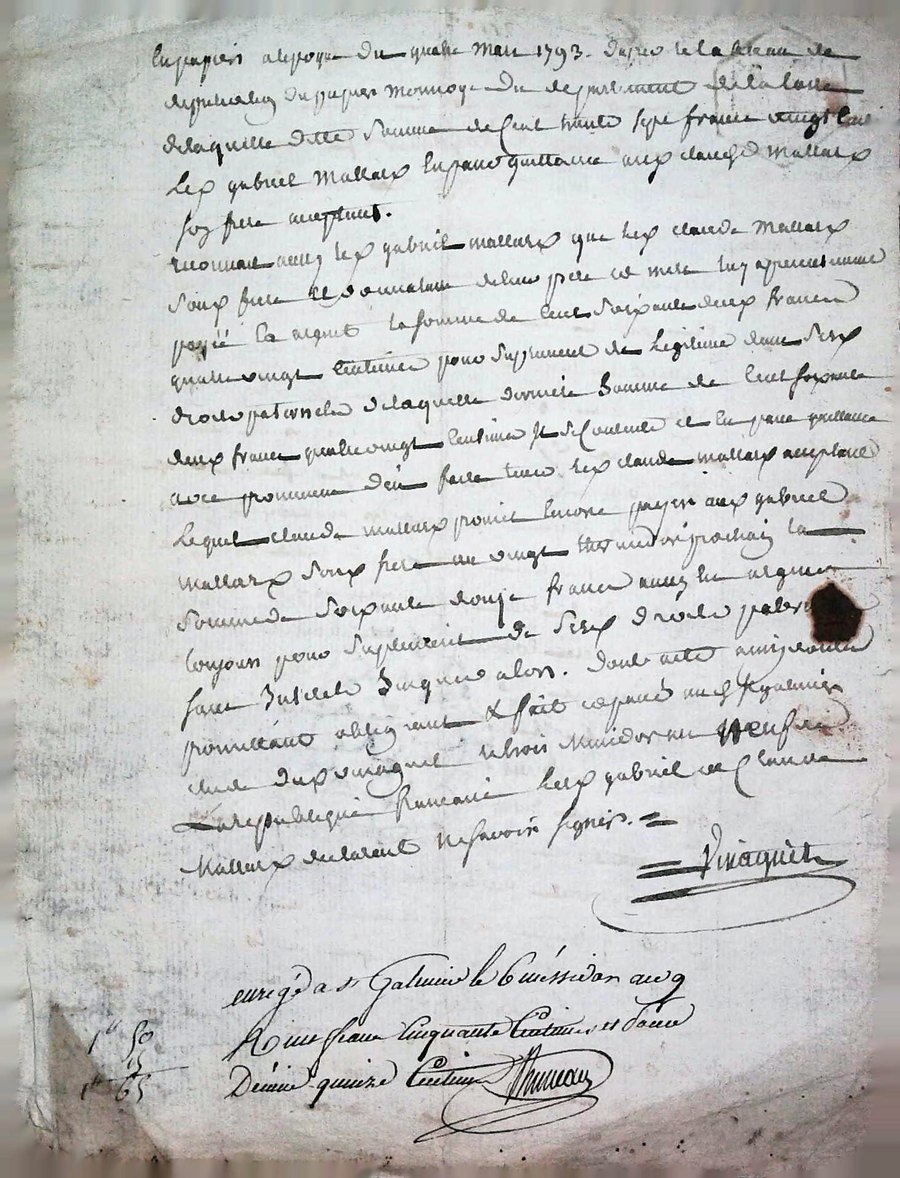 en papier a lepoque du quatre Mars 1793. dapres le tableau de
depreciation du papier monnoye du departement de la loire
delaquelle ditte somme de Cent trente sept francs vingt Cent
Le x gabriel Mallarx en passe quittance aux x claude Mallarx
son frere acceptant.
reconnait aussy le x gabriel mallarx que le x claude Mallarx
son x frere et donnataire de leur pere ce mere luy a presentement
payé en argent la somme de Cent Soixante deux francs
quatre vingt Centimes pour Suplement de Legitime dans Ses x
droits paternels delaquelle derniere Somme de Cent soixante
deux francs quatre vingt Centimes Il se Contente et en passe quittance
avec promesse d'en faire tenir le x claude mallarx acceptant
Lequel claude mallarx promet encore payer aux x gabriel
Mallarx Son x frere au vingt thermidor prochain la
Somme de Soixante douze francs aussy en argent
toujours pour Suplement de Ses x droits
sans Interets Jusques alors. dont acte
promettant obligeant & fait et passé a st galmier
etude du x viraguet le trois Messidor an Neuf de
La republique francaise Les x gabriel et Claude
Mallarx declarent ne savoir signer.
Viraguet
enregé a st Galmier le 6 messidor an 9
R un franc Cinquante Centimes et pour
Décime quinze Centimes
1 50
15
1 65